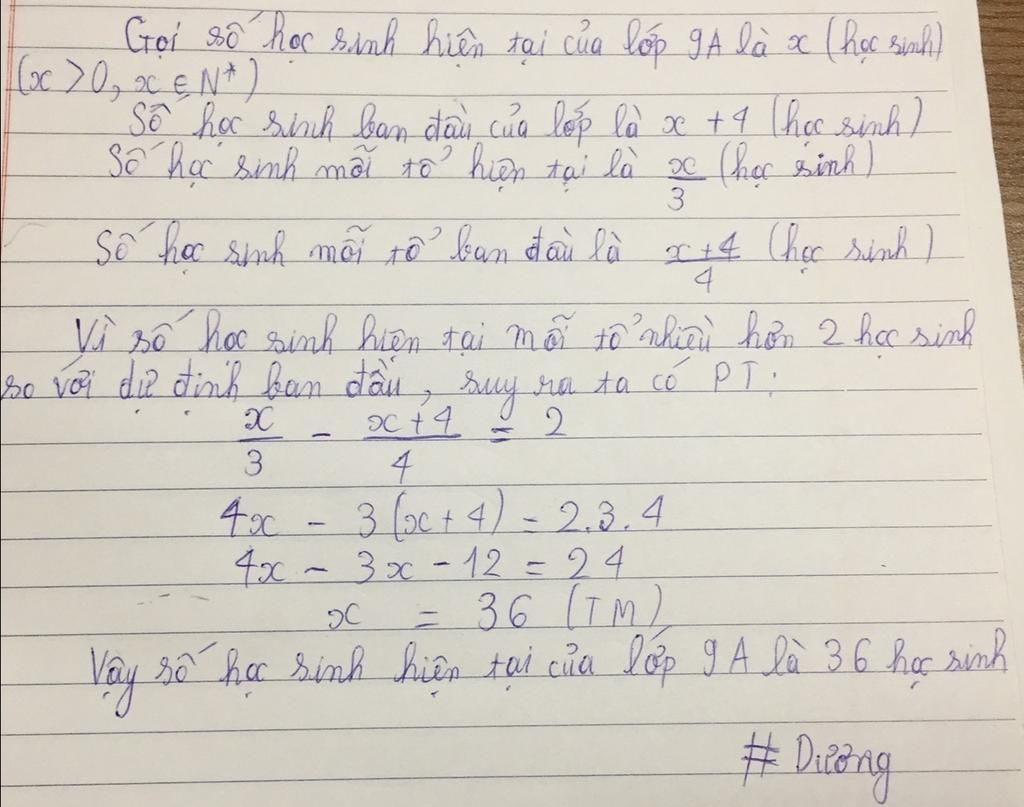 Gọi số học sinh hiện tại của lớp 9A là x (học sinh)
(x > 0, x ∈ N*)
Số học sinh ban đầu của lớp là x + 4 (học sinh)
Số học sinh mỗi tổ hiện tại là x/3 (học sinh)
Số học sinh mỗi tổ ban đầu là (x+4)/4 (học sinh)
Vì số học sinh hiện tại mỗi tổ nhiều hơn 2 học sinh
so với dự định ban đầu, suy ra ta có PT:
x/3 - (x+4)/4 = 2
4x - 3(x+4) = 2.3.4
4x - 3x - 12 = 24
x = 36 (TM)
Vậy số học sinh hiện tại của lớp 9A là 36 học sinh
# Dương